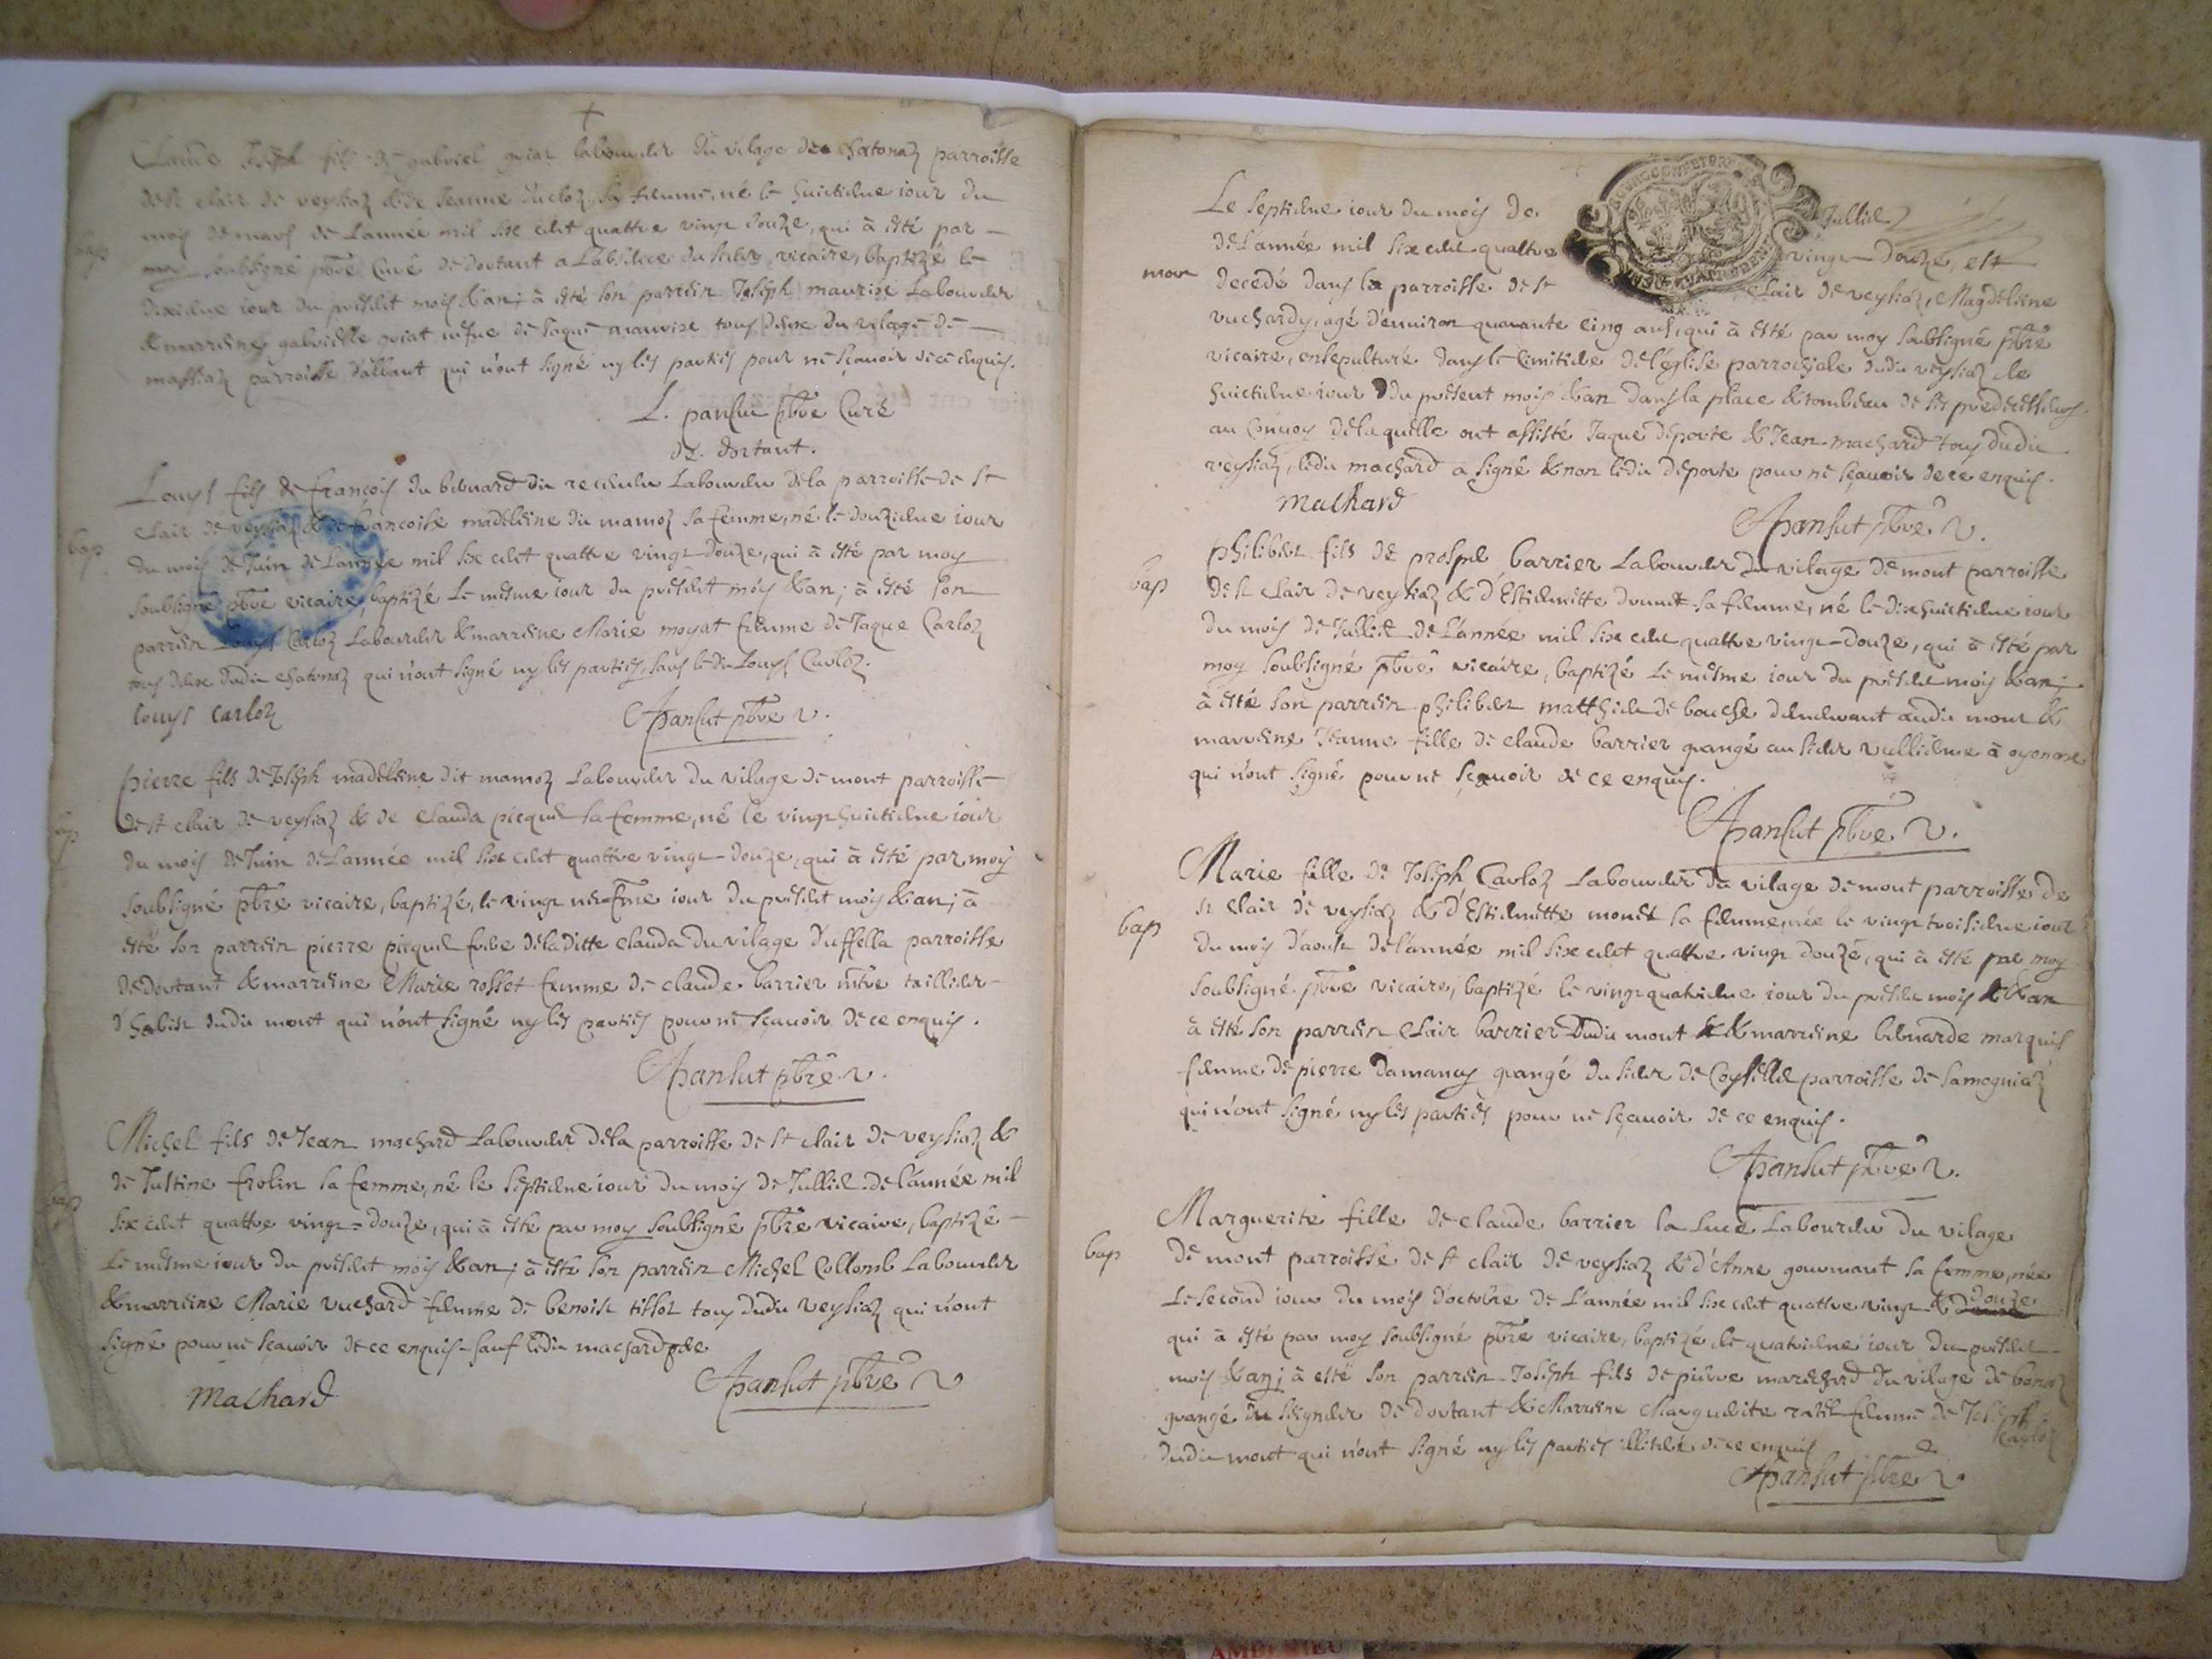 Claude Joseph fils de gabriel guiat laboureur du vilage de chatonaz parroisse
de st clair de veysiaz & de Jeanne ducloz sa femme, né le huictieme iour du
mois de mars de Lannée mil six cent quattre vingt douze, qui à esté par
moy soubsigné pbre Curé de dortant a Labsence du sieur vicaire, baptizé le
dixieme iour du present mois & an; à esté son parrein Joseph maurise Laboureur
& marreine gabrielle guiat vefue de Jaque maurise tous deux du vilage de
massiaz parroisse d'albant qui n'ont signé ny les parties pour ne sçauoir de ce enquis.
L. pansut pbre Curé
de dortant.
bap
Louys fils de françois du bernard du Laboureur dela parroisse de st
clair de veysiaz & de francoise madeleine du mamoz sa femme, né le douzieme iour
du mois de Juin de Lannée mil six cent quattre vingt douze, qui à esté par moy
soubsigné pbre vicaire, baptizé le mesme iour du present mois & an; à esté son
parrein Louys Carloz Laboureur & marreine Marie moyat femme de Jaque Carloz
tous deux dudit chatonaz qui n'ont signé ny les parties, sauf ledit Louys Carloz.
louys carloz
Apansut pbre v.
bap
pierre fils de Joseph madeleine dit mamoz Laboureur du vilage de mont parroisse
de st clair de veysiaz & de clauda picquet sa femme, né le vingt huictieme iour
du mois de Juin de Lannée mil six cent quattre vingt-douze, qui à esté par moy
soubsigné pbre vicaire, baptizé, le vingt neufme iour du present mois & an; à
esté son parrein pierre picquet frere dela ditte clauda du vilage d'uffella parroisse
de dortant & marreine Marie rosset femme de claude barrier mtre taillieur
d'habist dudit mont qui n'ont signé ny les parties pour ne sçauoir de ce enquis.
Apansut pbre v.
bap
Michel fils de Jean machard Laboureur dela parroisse de st clair de veysiaz &
de Justine frolin sa femme, né le septieme iour du mois de Jullie de lannée mil
six cent quattre vingt-douze, qui à esté par moy soubsigné pbre vicaire, baptizé
Le mesme iour du present mois & an; à esté son parrein Michel Collomb Laboureur
& marreine Marie vuchard femme de benoist tissot tous dudit veysiaz qui n'ont
signé pour ne sçauoir de ce enquis sauf ledit machard
Machard
Apansut pbre v
Le septieme iour du mois de Jullie
de Lannée mil six cent quattre vingt-douze, est
mort
decedé dans la parroisse de st clair de veysiaz, Magdeleine
vuchardy, agé d'enuiron quarante cinq ans, qui à esté par moy soubsigné pbre
vicaire, ensepulturée dans le cimitiere de l'église parrochiale dudit veysiaz le
huictieme iour du present mois & an dans la place & tombeau de ses predecesseurs.
au conuoy delaquelle ont assisté Jaque deporte & Jean machard tous dudit
veysiaz, ledit machard a signé & non ledit deporte pour ne sçauoir de ce enquis.
Machard
Apansut pbre v.
bap
philibert fils de prosper barrier Laboureur du vilage de mont parroisse
de st clair de veysiaz & d'Estiennette sa femme, né le dixhuictieme iour
du mois de Jullie de L'année mil six cent quattre vingt-douze, qui à esté par
moy soubsigné pbre vicaire, baptizé le mesme iour du present mois & an;
à esté son parrein philibert matthieu de bouche demeurant audit mont &
marreine Jeanne fille de claude barrier grangé au sieur vuillieme à oyonna
qui n'ont signé pour ne sçauoir de ce enquis.
Apansut pbre v.
bap
Marie fille de Joseph Carloz Laboureur du vilage de mont parroisse de
st clair de veysiaz & d'Estiennette monet sa femme, née le vingt troisieme iour
du mois d'aoust de lannée mil six cent quattre vingt douze, qui à esté par moy
soubsigné pbre vicaire, baptizé le vingt quatrieme iour du present mois & an
à esté son parrein clair barrier dudit mont & marreine bernarde marquis
femme de pierre damancy grangé du sieur de Coysellet parroisse de samogniaz
qui n'ont signé ny les parties pour ne sçauoir de ce enquis.
Apansut pbre v.
bap
Marguerite fille de claude barrier la Luce Laboureur du vilage
de mont parroisse de st clair de veysiaz & d'Anne gourmant sa femme, née
Le second iour du mois d'octobre de L'année mil six cent quattre vingt & douze
qui à esté par moy soubsigné pbre vicaire, baptizé le quatrieme iour du present
mois & an; à esté son parrein Joseph fils de pierre mareschard du vilage de bonaz
grangé du seigneur de dortant & Marreine Marguerite femme de Joseph
Carloz
dudit mont qui n'ont signé ny les parties illitere de ce enquis
Apansut pbre v.
AMBERIEU